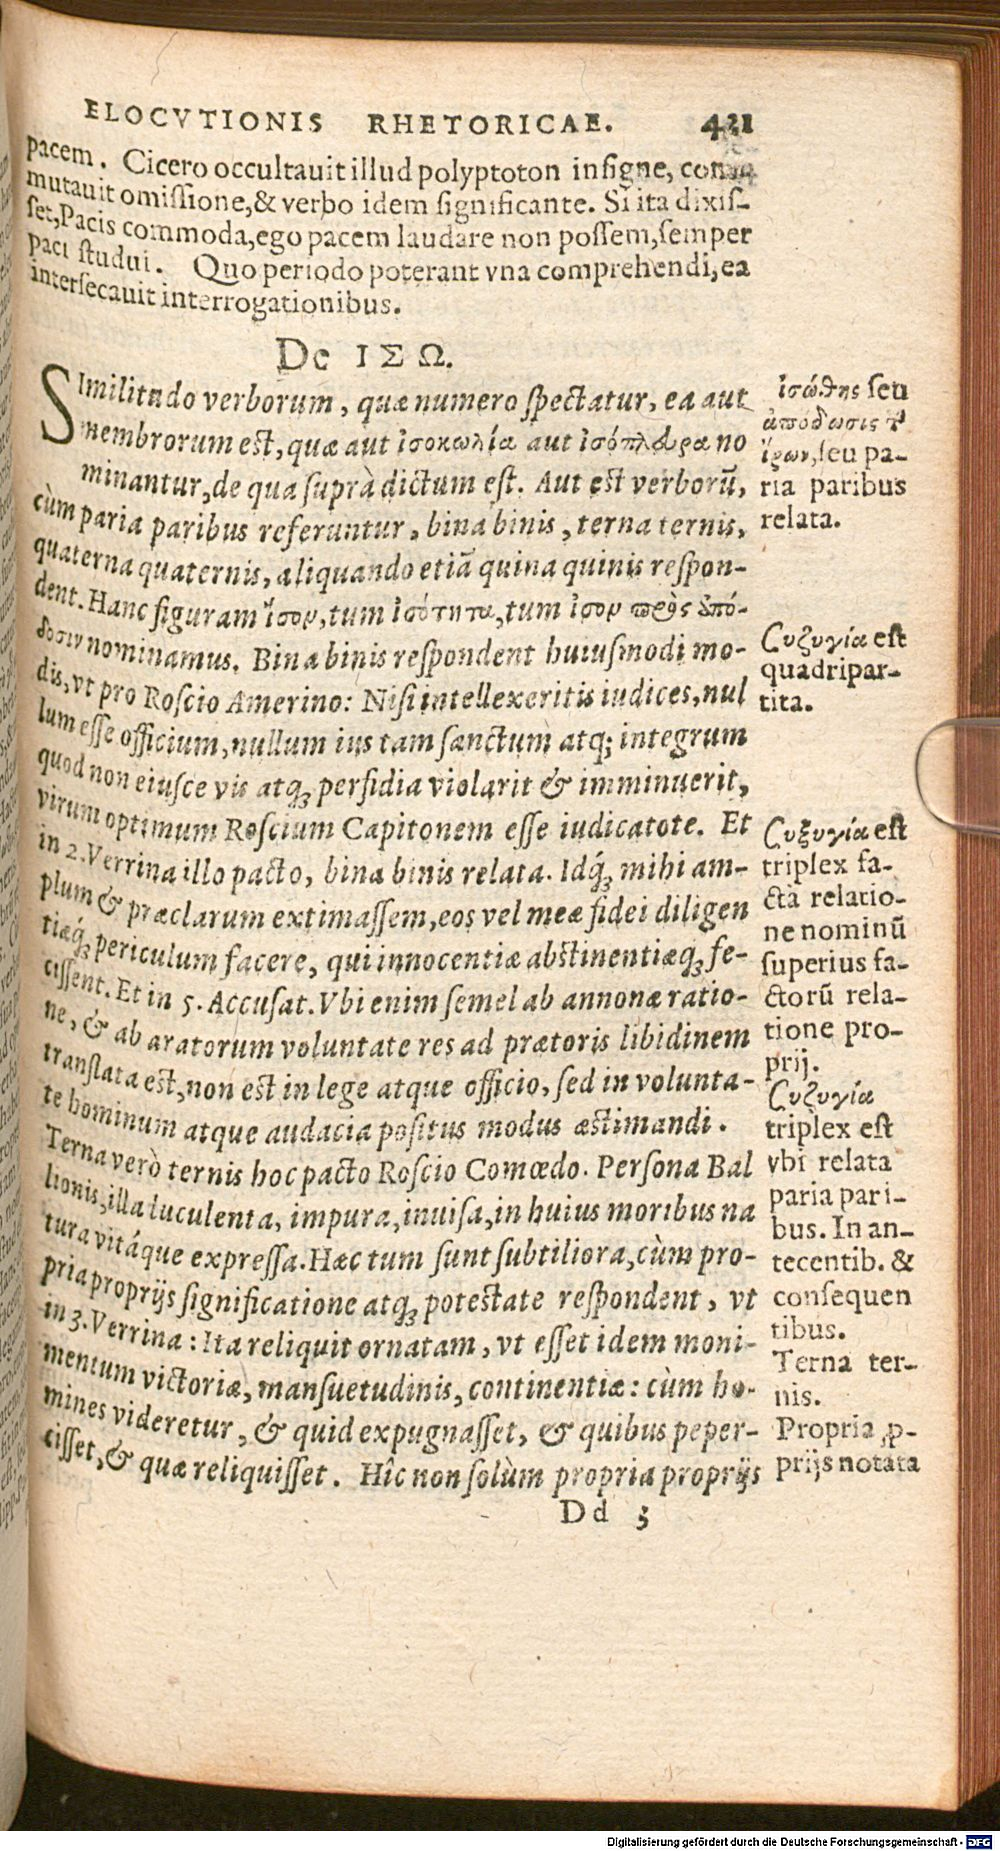 ELOCVTIONIS RHETORICAE. 421
pacem. Cicero occultauit illud polyptoton insigne, com
mutauit omissione, & verbo idem significante. Si ita dixis-
set, Pacis commoda, ego pacem laudare non possem, semper
paci studui. Quo periodo poterant vna comprehendi, ea
intersecauit interrogationibus.
De ΙΣΩ.
SImilitudo verborum, quæ numero spectatur, ea aut
membrorum est, quæ aut ἰσοκωλία aut ἰσόπλευρα no
minantur, de qua suprà dictum est. Aut est verborū,
cùm paria paribus referuntur, bina binis, terna ternis,
quaterna quaternis, aliquando etiā quina quinis respon-
dent. Hanc figuram ἴσον, tum ἰσότητα, tum ἰσον πρὸς ἀπό-
δοσιν nominamus. Bina binis respondent huiusmodi mo-
dis, vt pro Roscio Amerino: Nisi intellexeritis iudices, nul
lum esse officium, nullum ius tam sanctum atq; integrum
quod non eiusce vis atq; perfidia violarit & imminuerit,
virum optimum Roscium Capitonem esse iudicatote. Et
in 2. Verrina illo pacto, bina binis relata. Idq́; mihi am-
plum & præclarum extimassem, eos vel meæ fidei diligen
tiæq́; periculum facere, qui innocentiæ abstinentiæq́; fe-
cissent. Et in 5. Accusat. Vbi enim semel ab annonæ ratio-
ne, & ab aratorum voluntate res ad prætoris libidinem
translata est, non est in lege atque officio, sed in volunta-
te hominum atque audacia positus modus æstimandi.
Terna verò ternis hoc pacto Roscio Comœdo. Persona Bal
lionis, illa luculenta, impura, inuisa, in huius moribus na
tura vitáque expressa. Hæc tum sunt subtiliora, cùm pro-
pria proprijs significatione atq; potestate respondent, vt
in 3. Verrina: Ita reliquit ornatam, vt esset idem moni-
mentum victoriæ, mansuetudinis, continentiæ: cùm ho-
mines videretur, & quid expugnasset, & quibus peper-
cisset, & quæ reliquisset. Hîc non solùm propria proprijs
Dd 5
ἰσώθης seu
ἀπόδωσις τ̃
ἴσων, seu pa-
ria paribus
relata.
Συζυγία est
quadripar-
tita.
Συζυγία est
triplex fa-
cta relatio-
ne nominū
superius fa-
ctorū rela-
tione pro-
prij.
Συζυγία
triplex est
vbi relata
paria pari-
bus. In an-
tecentib. &
consequen
tibus.
Terna ter-
nis.
Propria ꝓ-
prijs notata
Digitalisierung gefördert durch die Deutsche Forschungsgemeinschaft - DFG